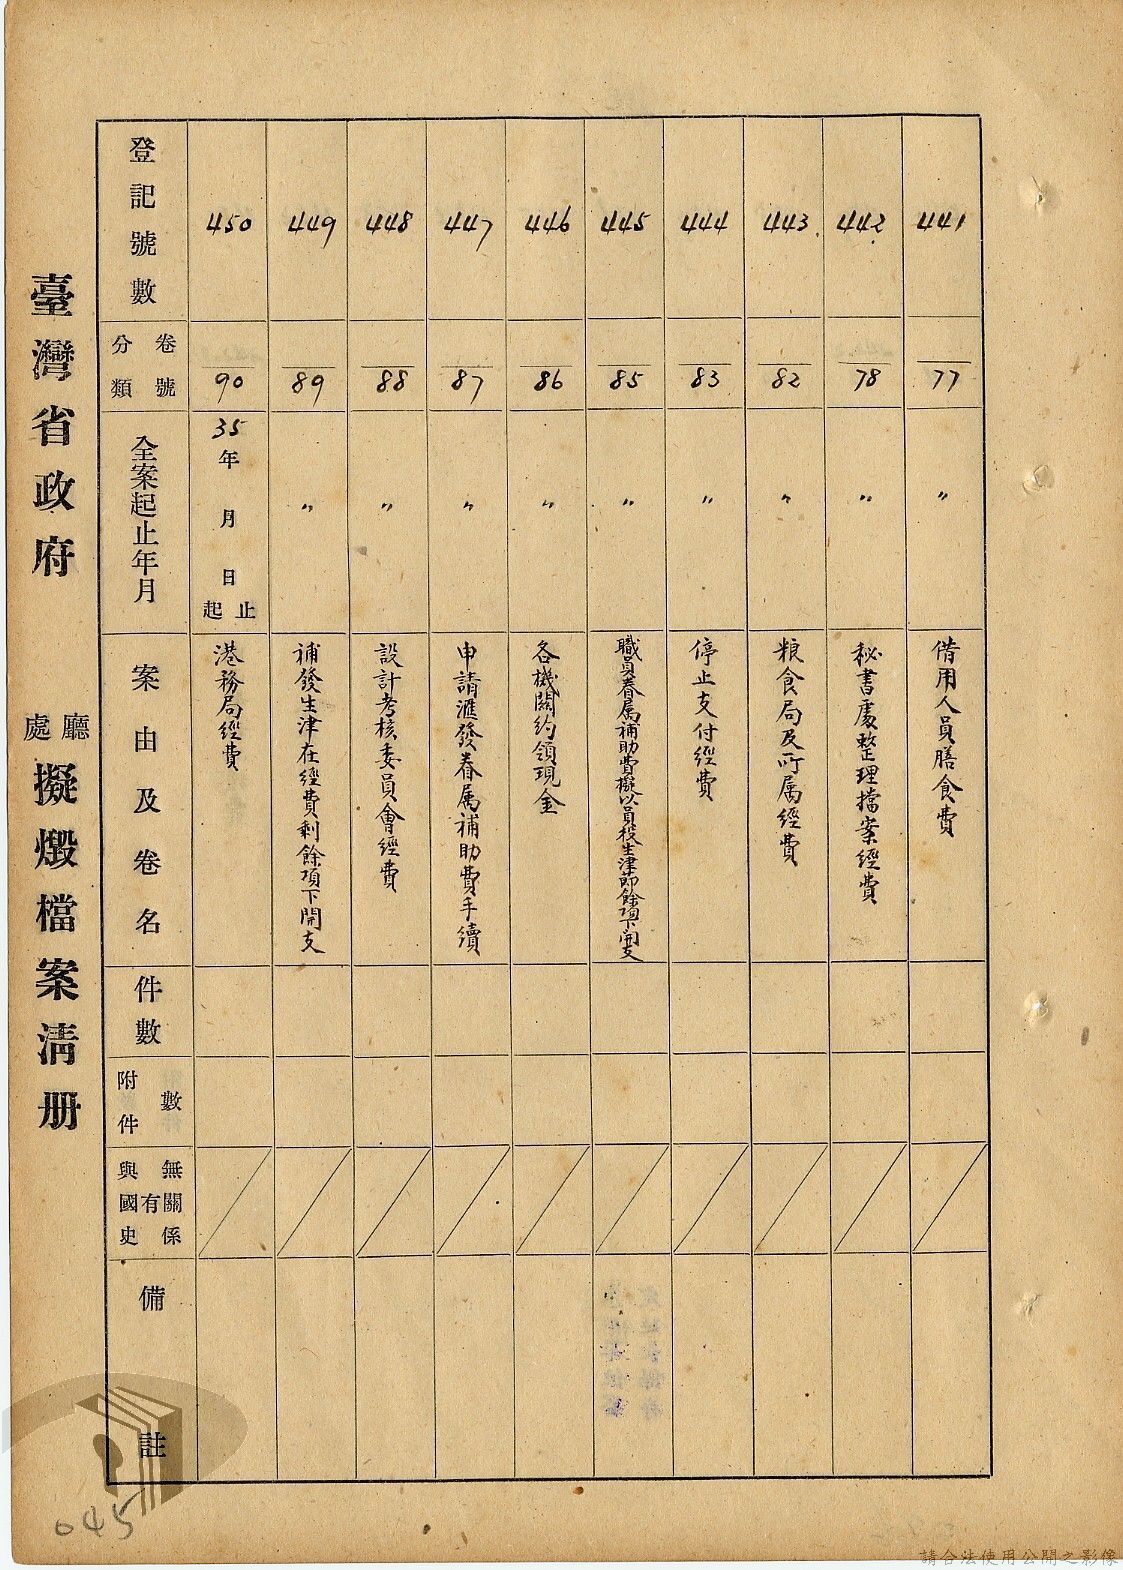 臺灣省政府 廳處擬燬檔案淸册
登記號數
卷號
分類
全案起止年月
案由及卷名
件數
附件數
與國史有無關係
備註
450
90
35年 月 日起止
港務局經費
449
89
〃
補發生津在經費剩餘項下開支
448
88
〃
設計考核委員會經費
447
87
〃
申請滙發眷属補助費手續
446
86
〃
各機關約領現金
445
85
〃
職員眷属補助費擬以員役生津節餘項下開支
444
83
〃
停止支付經費
443
82
〃
粮食局及所属經費
442
78
〃
秘書處整理擋案經費
441
77
〃
借用人員膳食費
045
請合法使用公開之影像